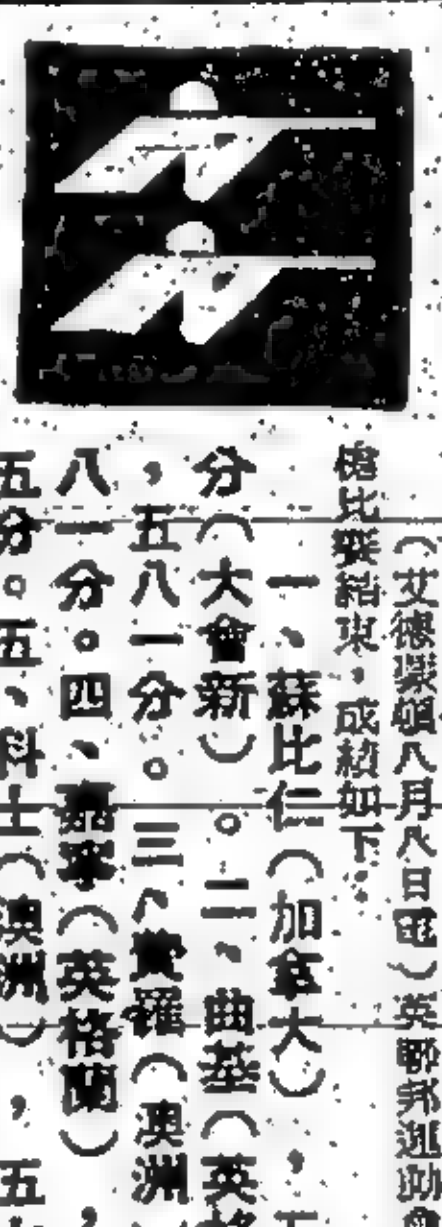 （艾德蒙頓八月八日電）英聯邦運動會
槍比賽結束，成績如下
一、蘇比仁（加拿大），五
分（大會新）。二、曲基（英格
，五八一分。三、黃羅（澳洲
八一分。四、嘉寧（英格蘭），
五分。五、科士（澳洲），五